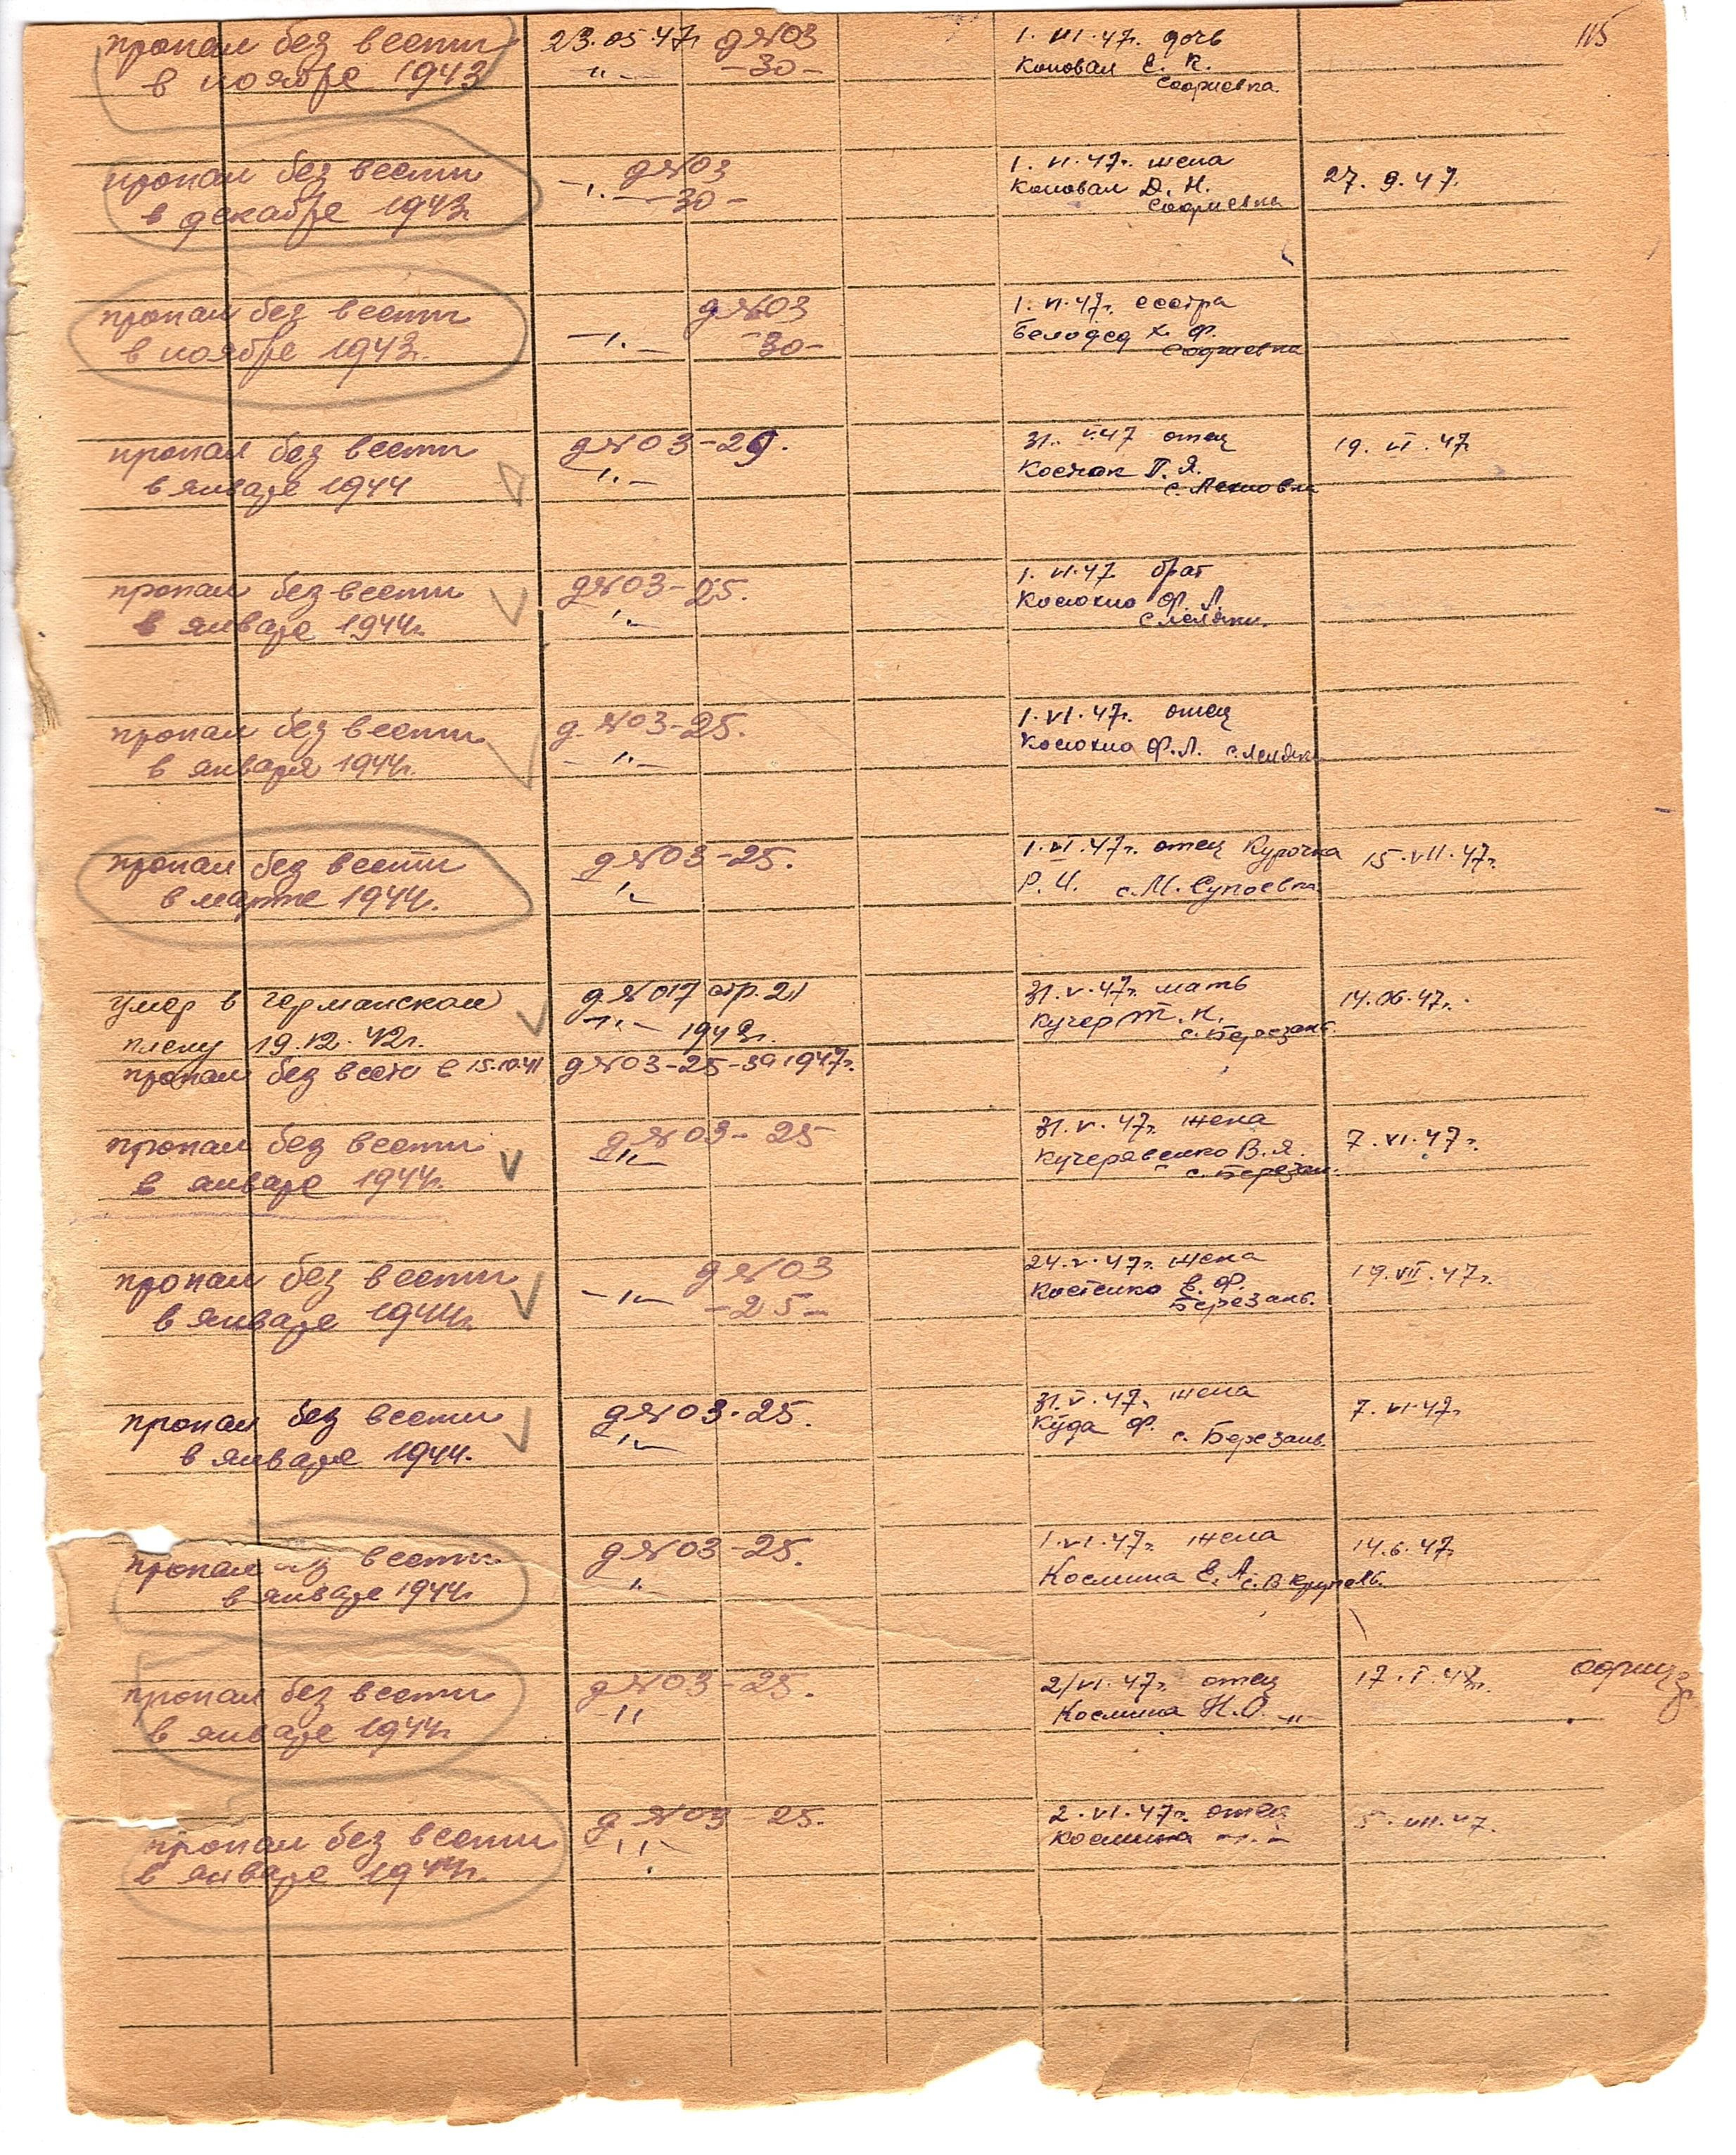 115
пропал без вести
в ноябре 1943
23.05.47г д№03
-"- -30-
1.VI.47г. дочь
Коновал Е. К.
пропал без вести
в декабре 1943г.
д№03
-"- -30-
1.VI.47г. жена
Коновал Д. Н.
27.9.47.
пропал без вести
в ноябре 1943г.
д№03
-"- -30-
1.VI.47г. сестра
Белодед Х. Ф.
пропал без вести
в январе 1944
д№03-29.
-"-
31.V.47 отец
Костюк П. Я.
19.VI.47г
пропал без вести
в январе 1944г.
д№03-25.
-"-
1.VI.47 брат
Ф. Л.
пропал без вести
в января 1944г.
д.№03-25.
-"-
1.VI.47г. отец
Ф.Л.
пропал без вести
в марте 1944г.
д№03-25.
-"-
1.VI.47г. отец Курочка
Р.И. с.М.Супоевка
15.VII.47г.
умер в германском
плену 19.12.42г.
д№017 стр.21
-"-
31.V.47г. мать
Кучер Т. К.
с.Березань.
14.06.47г.
пропал без вести в 15.10.41
д№03-25-39 1947г.
пропал без вести
в январе 1944г.
д№03-25
-"-
31.V.47г. жена
Кучерявенко В.Я.
с.Березан.
7.VI.47г.
пропал без вести
в январе 1944г.
д№03
-"- -25-
24.V.47г. жена
Костенко Е. Ф.
Березань.
19.VII.47г.
пропал без вести
в январе 1944.
д№03-25.
-"-
31.V.47г. жена
Куда Ф. с. Березань.
7.VI.47г
пропал вести
в январе 1944г
д№03-25.
-"-
1.VI.47г. жена
Космина Е. А.
14.6.47г.
пропал без вести
в январе 1944г.
д№03-25.
-"-
2/VI.47г. отец
Космина Н.О. -"-
пропал без вести
в январе 1944г.
д№03 25.
-"-
2.VI.47г. отец
Космина -"-
5.VII.47.